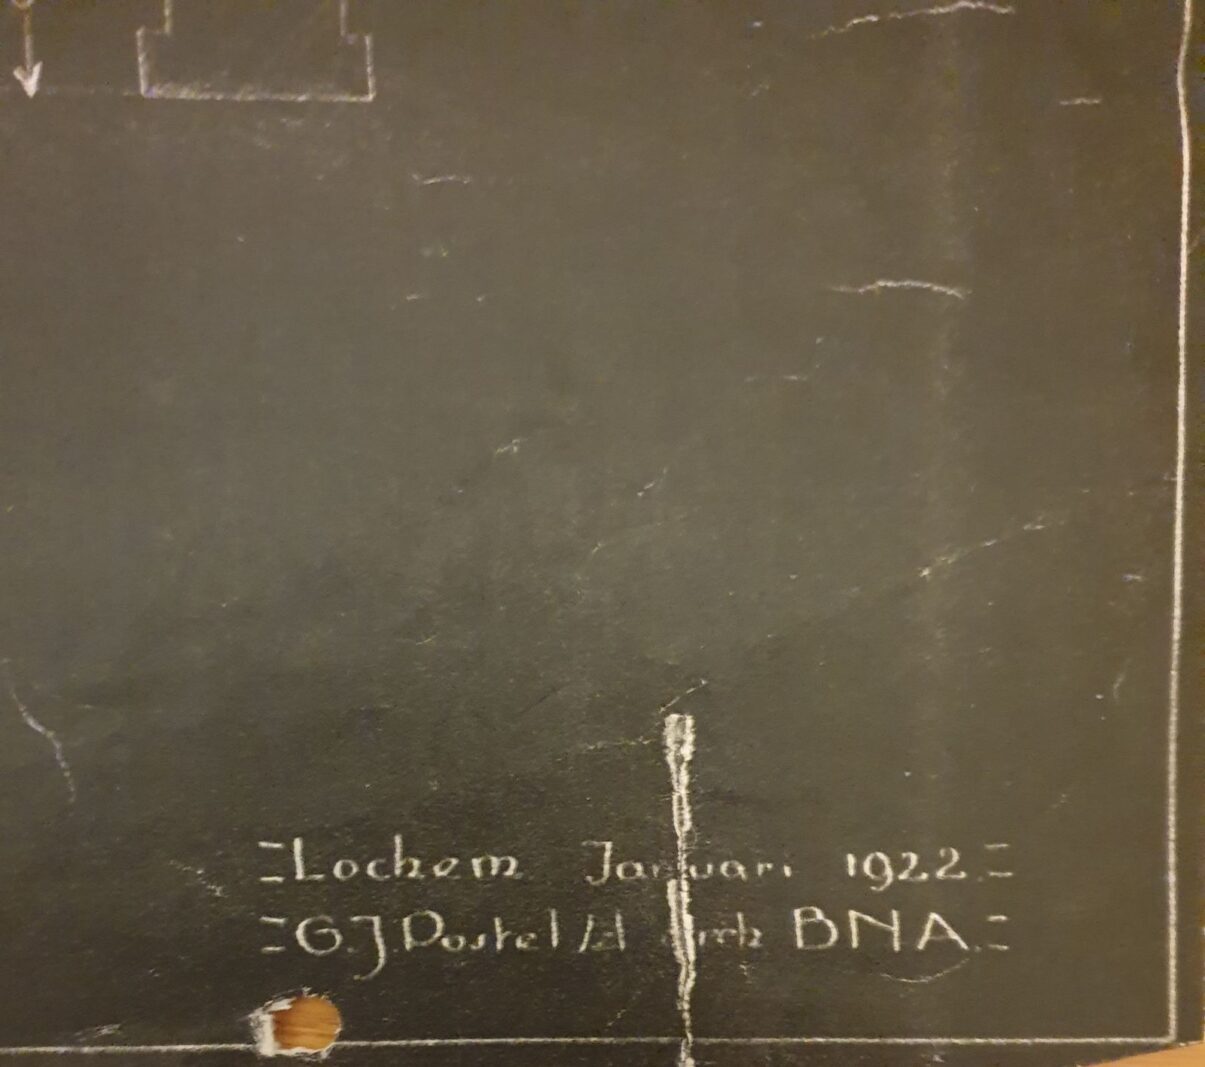 =Lochem Januari 1922.=
=G.J.Postel Jzn arch BNA.=